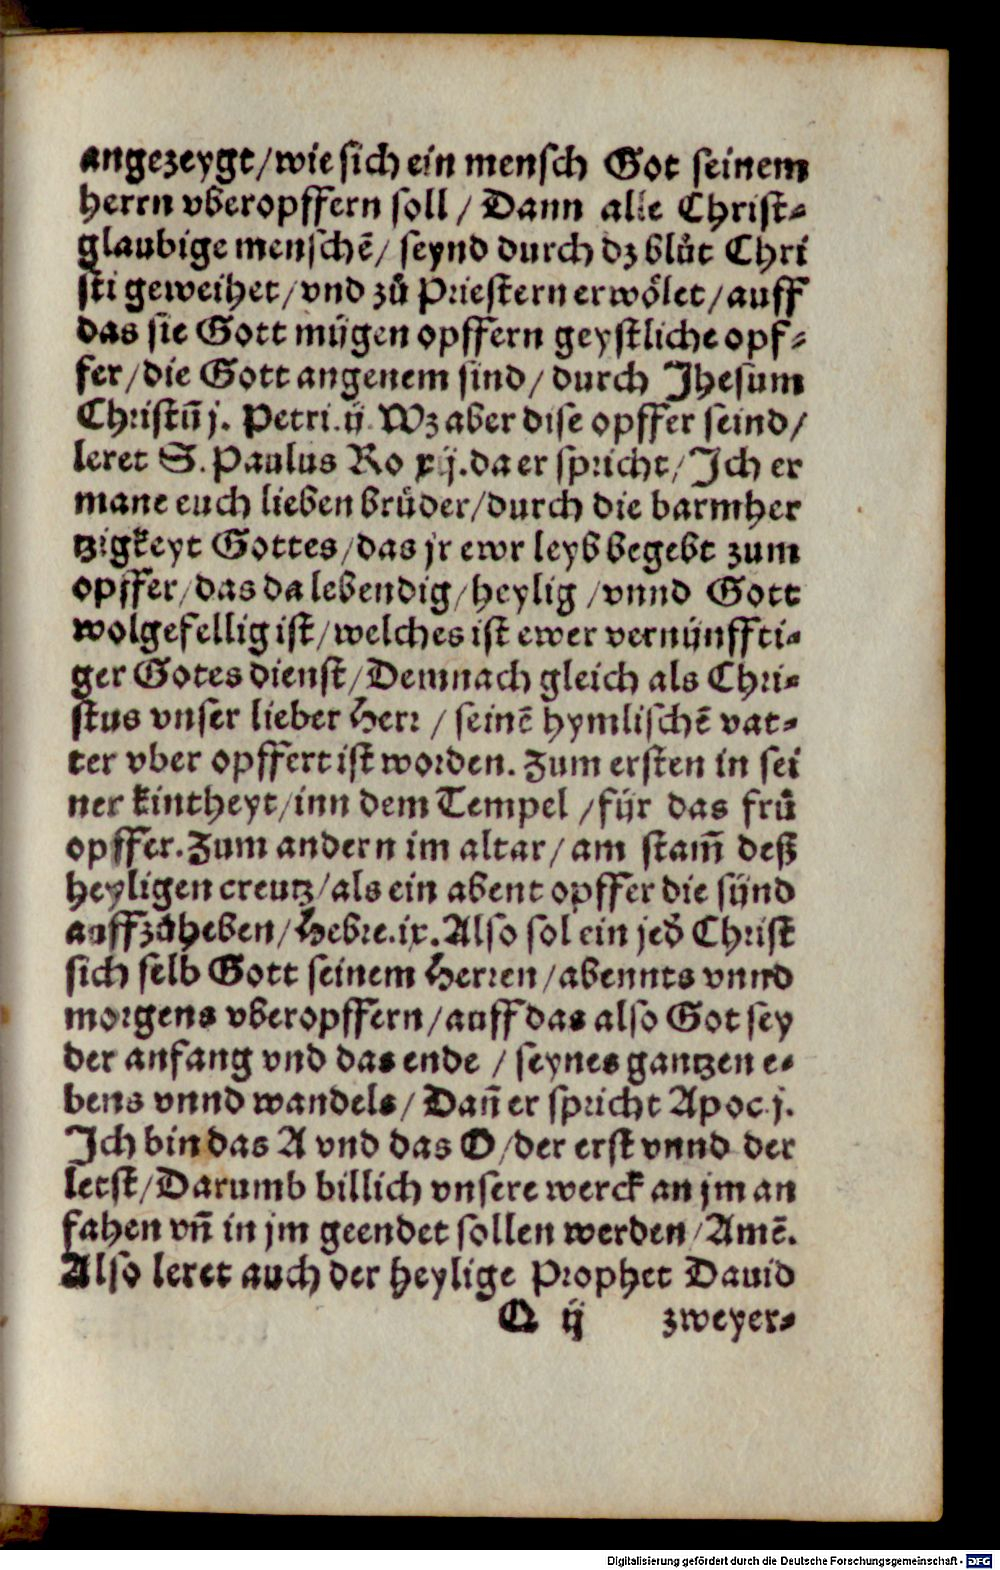 angezeygt/wie sich ein mensch Got seinem
herrn vberopffern soll / Dann alle Christ-
glaubige menschē/ seynd durch dz blůt Chri
sti geweihet/vnd zů Priestern erwölet/auff
das sie Gott mügen opffern geystliche opf-
fer/die Gott angenem sind/durch Jhesum
Christū j. Petri.ij. Wz aber dise opffer seind/
leret S. Paulus Ro xij.da er spricht/Jch er
mane euch lieben brůder/durch die barmher
tzigkeyt Gottes/das jr ewr leyb begebt zum
opffer/das da lebendig/heylig /vnnd Gott
wolgefellig ist/welches ist ewer vernünffti-
ger Gotes dienst/Demnach gleich als Chri-
stus vnser lieber Herr / seinē hymlischē vat-
ter vber opffert ist worden. Zum ersten in sei
ner kintheyt/inn dem Tempel /für das frů
opffer. Zum andern im altar/am stam̄ deß
heyligen creutz/als ein abent opffer die sünd
auffzůheben/Hebre.ix. Also sol ein jed̕ Christ
sich selb Gott seinem Herren/abennts vnnd
morgens vberopffern/auff das also Got sey
der anfang vnd das ende / seynes gantzen e-
bens vnnd wandels/ Dan̄ er spricht Apoc.j.
Jch bin das A vnd das O/der erst vnnd der
letst/Darumb billich vnsere werck an jm an
fahen vn̄ in jm geendet sollen werden/Amē.
Also leret auch der heylige Prophet Dauid
Q ij zweyer-
Digitalisierung gefördert durch die Deutsche Forschungsgemeinschaft - DFG